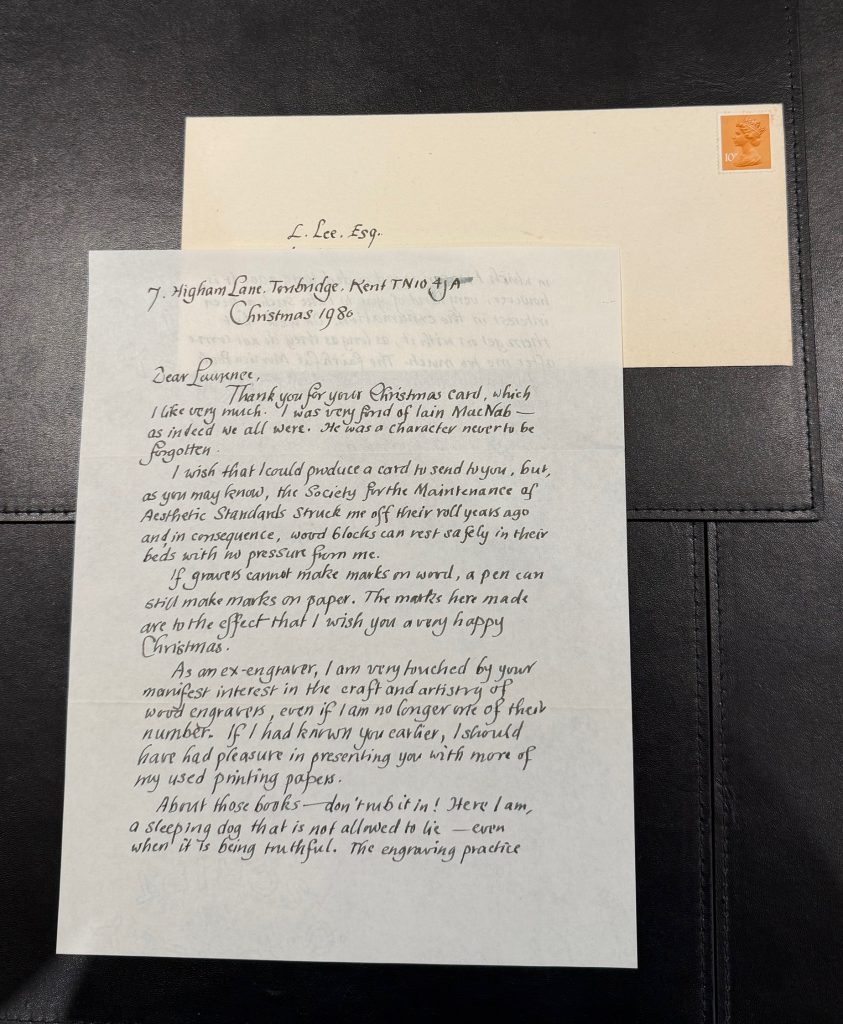 10P
L. Lee. Esq.
7. Higham Lane. Tonbridge. Kent TN10 4JA
Christmas 1980
Dear Laurence,
Thank you for your Christmas card, which
I like very much. I was very fond of Iain MacNab —
as indeed we all were. He was a character never to be
forgotten.
I wish that I could produce a card to send to you, but,
as you may know, the Society for the Maintenance of
Aesthetic Standards struck me off their roll years ago
and, in consequence, wood blocks can rest safely in their
beds with no pressure from me.
If gravers cannot make marks on wood, a pen can
still make marks on paper. The marks here made
are to the effect that I wish you a very happy
Christmas.
As an ex-engraver, I am very touched by your
manifest interest in the craft and artistry of
wood engravers, even if I am no longer one of their
number. If I had known you earlier, I should
have had pleasure in presenting you with more of
my used printing papers.
About those books — don't rub it in! Here I am,
a sleeping dog that is not allowed to lie — even
when it is being truthful. The engraving practice